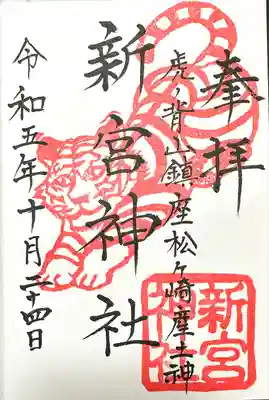 奉拝
虎ノ背山鎮座松ヶ崎産土神
新宮神社
令和五年十月二十四日
新宮神社